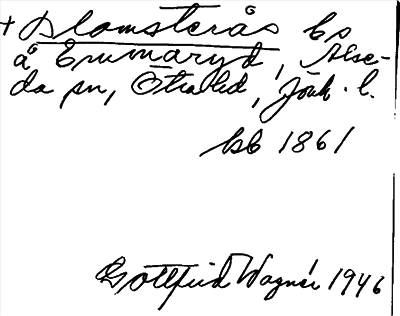 + Blomsterås bs
å Emmaryd, Alse-
da sn, Ö hd, Jönk. l.
hb 1861
Gottfrid Wagnér 1946